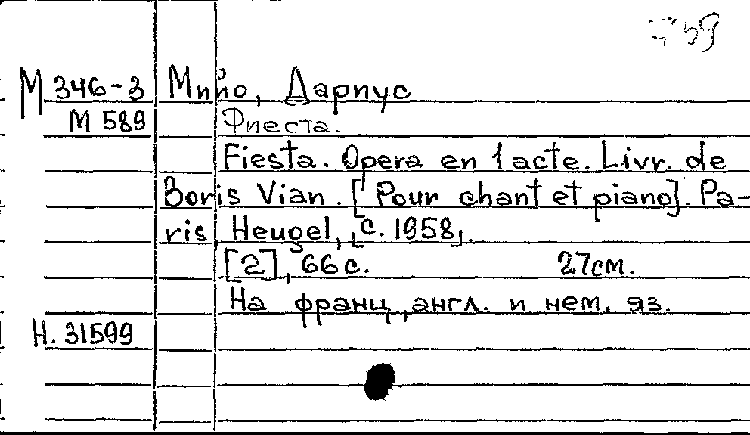 59
М 346-3 Мийо, Дариус
М 589 Фиеста.
Fiesta. Opera en 1 acte. Livr. de
Boris Vian. [Pour chant et piano]. Pa-
ris, Heugel, [с. 1958].
[2], 66 с. 27см.
На франц., англ. и нем. яз.
Н. 31599